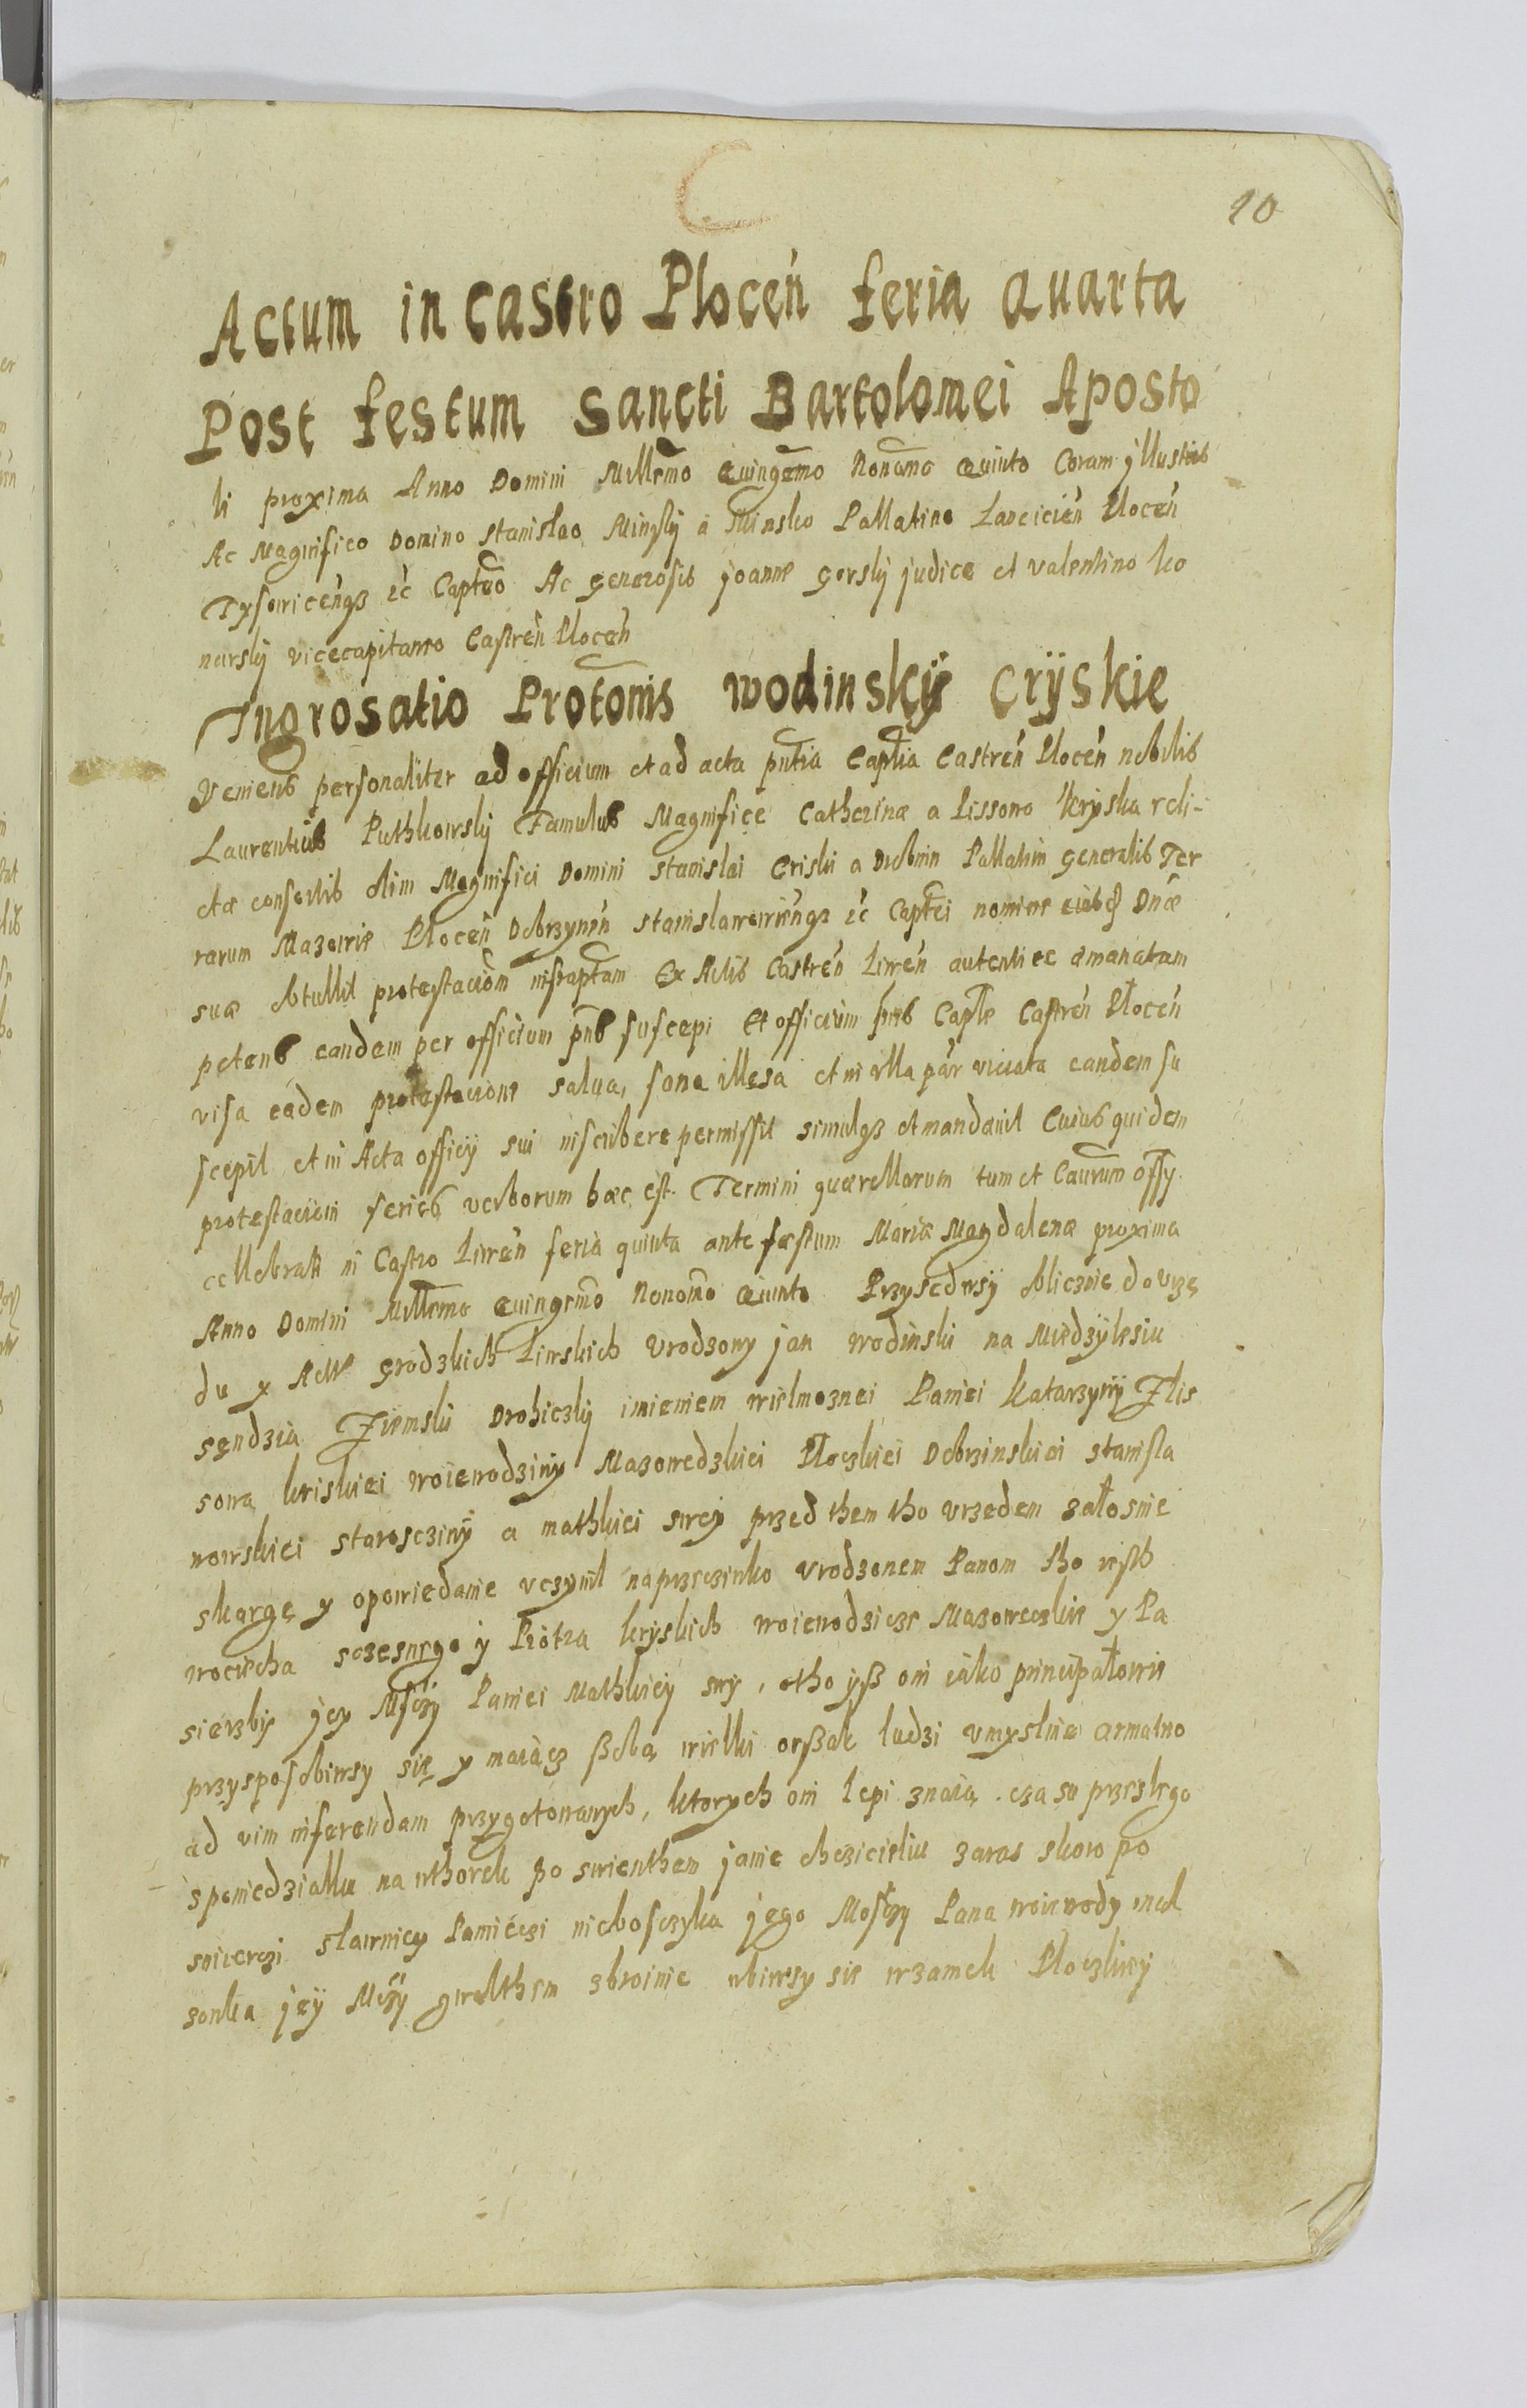 C
10
Actum in castro Plocen̄ feria quarta
Post festum Sancti Bartolomei Aposto
li proxima Anno Domini Millem̄o Quingem̄o Nonam̄o Quinto Coram jllustris
Ac Magnifico Domino Stanislao Minskÿ a Minsko Pallatino Lancicien̄ Plocen̄
Capt̄eo Ac generosis joanne gorskÿ judice et valentino ko
narskÿ vicecapitaneo Castren̄ Plocen̄
Ingrosatio Protōnis wodinskÿ Crÿskie
Veniens personaliter ad officium et ad acta pn̄tia Captl̄ia Castren̄ Plocen̄ nobilis
Laurentius Puthkowskÿ Famulus Magnificę Catherinæ a Lissowo kryska reli-
ctæ consortis olim Magnifici Domini Stanislai Criski a Drobnin Pallatini generalis Ter
rarum Mazowie Plocen̄ Dobrzynen̄ Stanislawowienqз ec̄ Capt̄ei nomine eiusd Dn̄æ
suæ obtullit protestaciōn infraptam Ex Actis Castren̄ Liwen̄ autentice emanatam
petens eandem per officium pn̄s suscepi Et officium pn̄s Captl̄e Castren̄ Plocen̄
visa eadem protestacione salva, sana illesa et in ulla par̄ viciata eandem su
scepit et in Acta officÿ sui inscribere permissit simulqз et mandavit Cuius quidem
protestacioni series verborum hæc est. Termini quærellarum tum et Causarum offÿ
cellebrati in Castro Liwen̄ feria quinta ante fæstum Mariæ Magdalenæ proxima
Anno Domini Millem̄o Quingem̄o Nonom̄o Quinto Przysedwsÿ oblicznie do vrzę
du y Act grodzkich Liwskich Vrodzony jan wodinski na Miedzÿlesiu
sęndzia Ziemski Drohiczkÿ imieniem wielmoznei Paniei katarzynÿ Zlis
sowa kriskiei woiewodzinÿ Mazowedzkiei Ploczkiei Dobrzinskiei stanisla
wowskiei starosczinÿ a mathkiei swey przed them tho vrzedem załosnie
skargę y opowiedanie vczynil naprzeczinko vrodzonem Panom
wociecha sczesnego ÿ Piotra krÿskich woiewodzicze Mazowieczkie y Pa
sierzby jey Paniei Mathkiey swÿ, otho yß oni iako principałowie
przysposobiwsy się y maiącz ßobą wielki orßak ludzi vmyslnie armatno
ad vim inferendam przygotowanych, ktorych oni lepi znaią. czasu przeslego
sponiedzialku na wthorek po swienthem janie chczicielu zaras skoro po
smierczi sławniey Pamięczi nieboszczyka jego Moszczy Pana woiewody mal
zonka jeÿ gwalthem zbroinie wbiwsy sie wzamek Ploczkiey